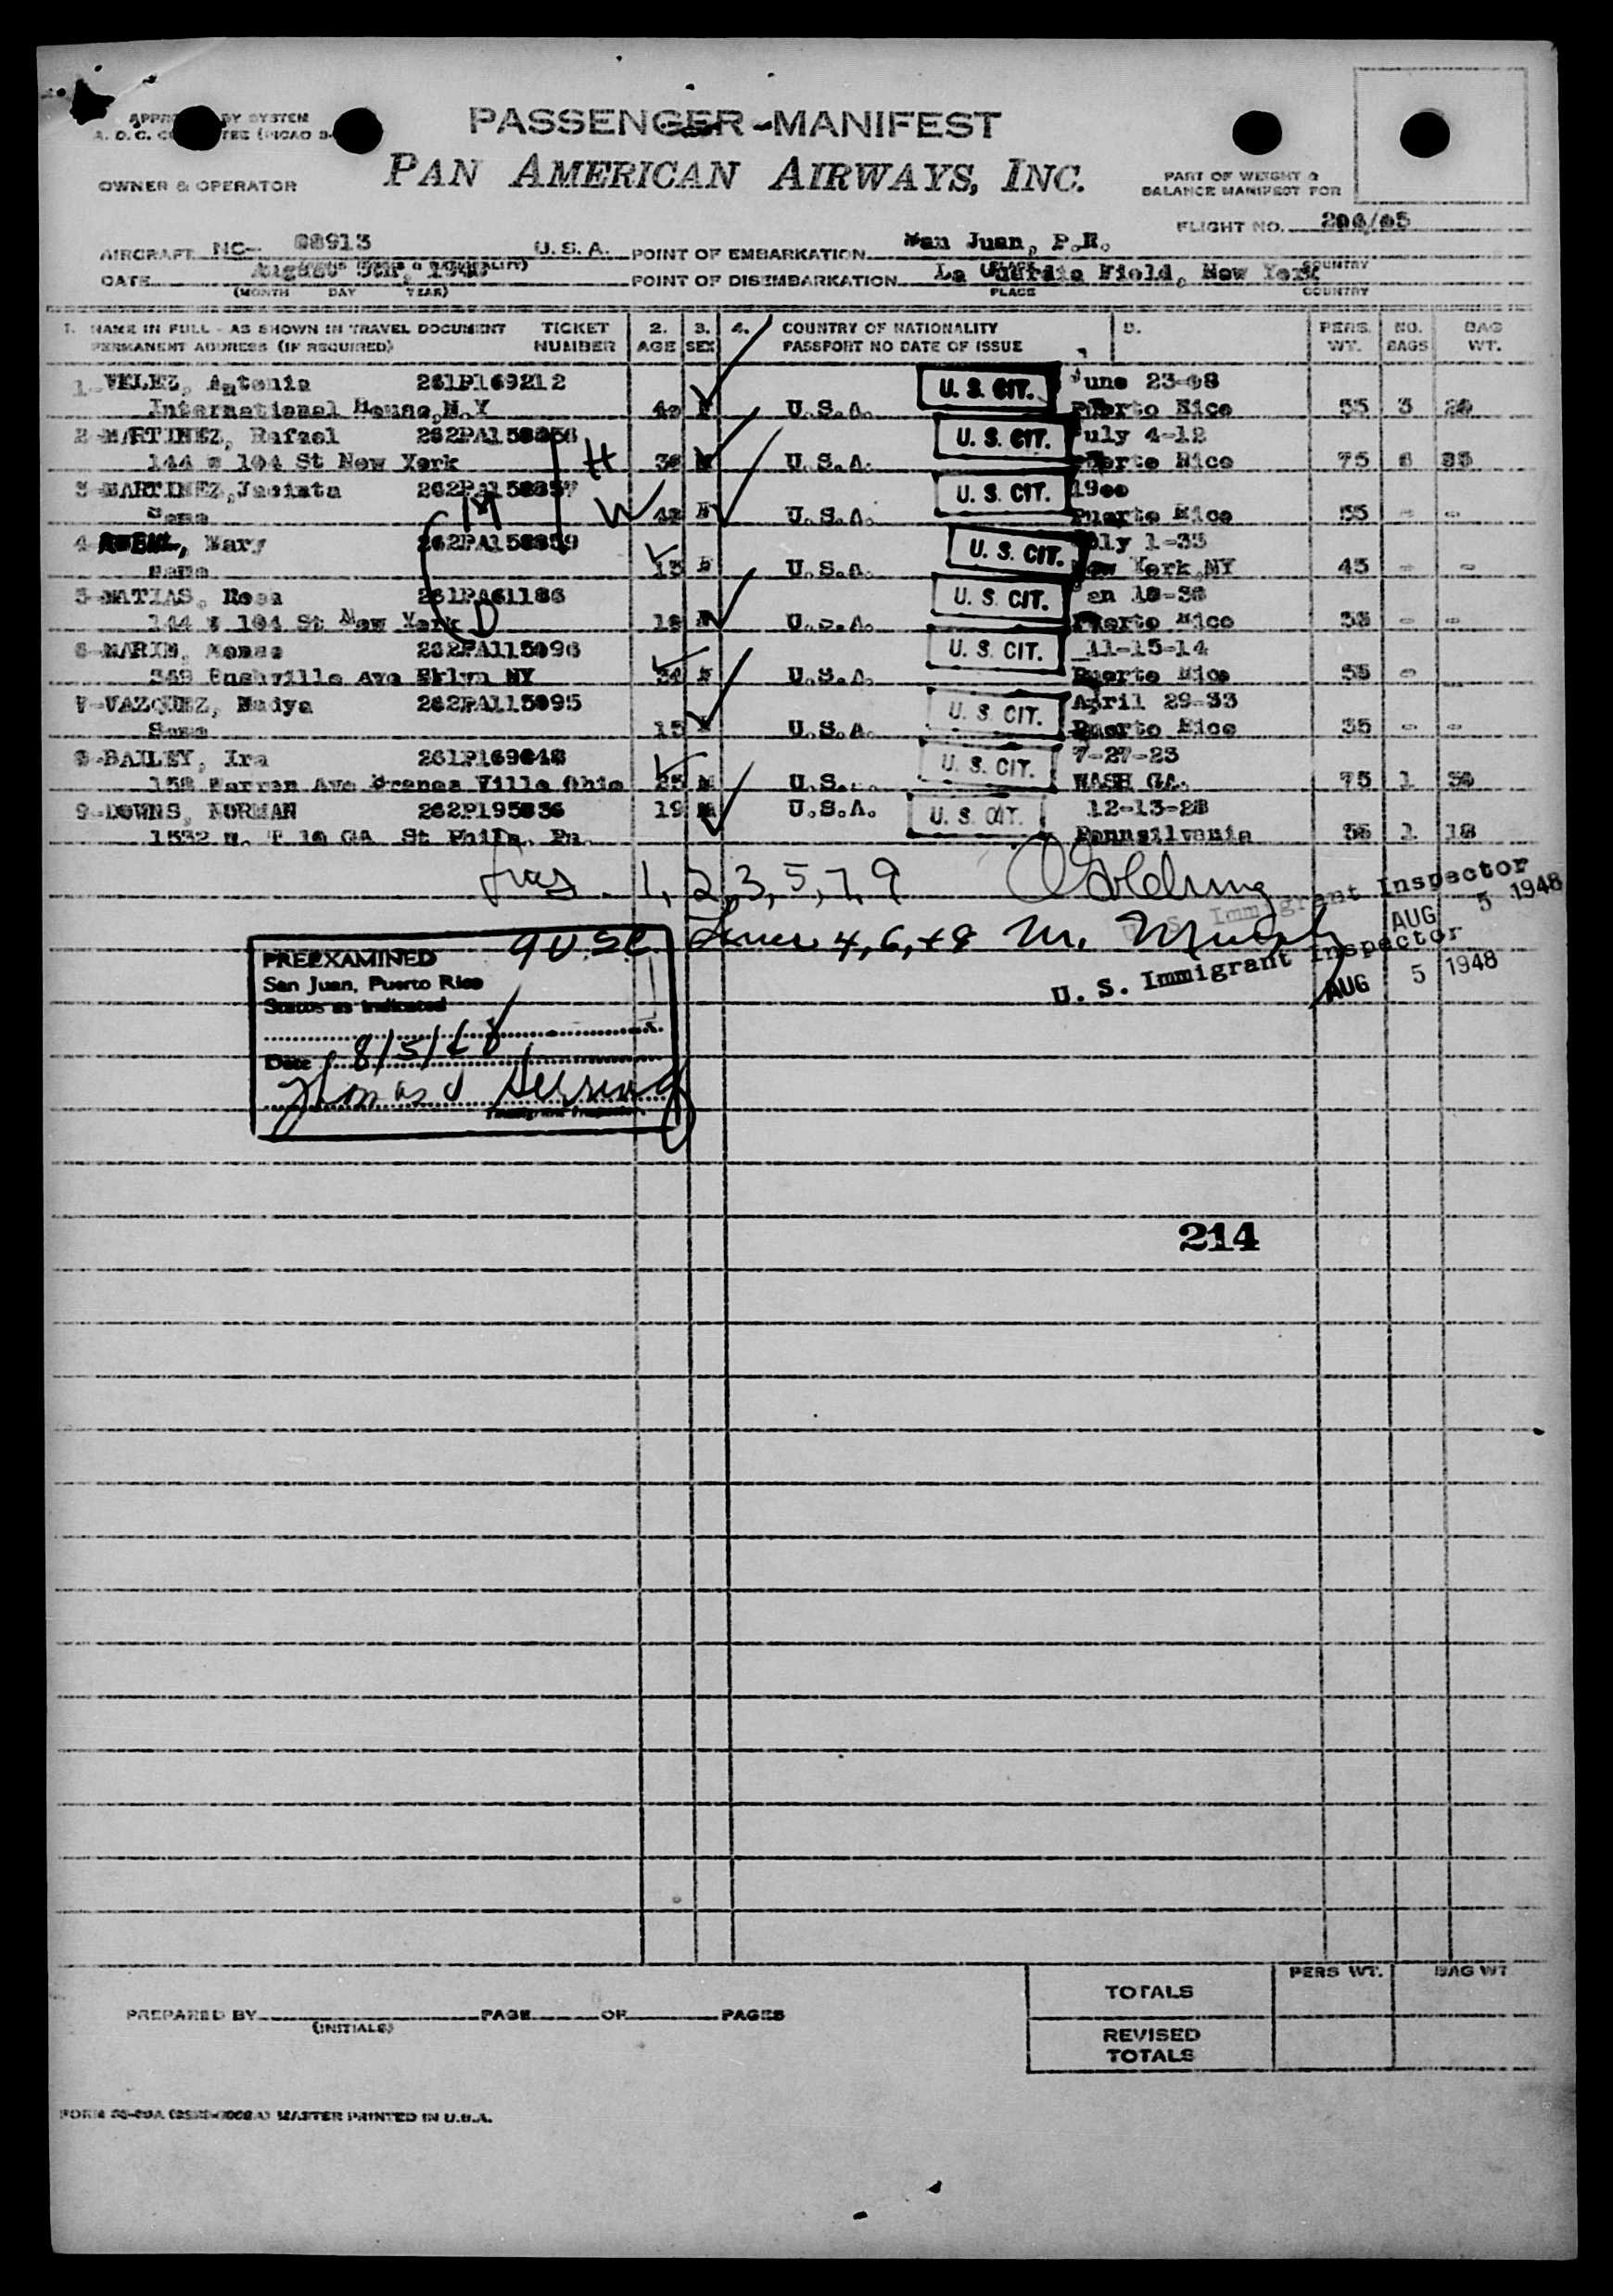 PASSENGER MANIFEST
PAN AMERICAN AIRWAYS, INC.
OWNER & OPERATOR
PART OF WEIGHT &
BALANCE MANIFEST FOR
FLIGHT NO.
AIRCRAFT NC- 08913 U.S.A. POINT OF EMBARKATION San Juan, P.R.
DATE August 5th, POINT OF DISEMBARKATION La Guardia Field, New York
(MONTH DAY YEAR) PLACE COUNTRY
1. NAME IN FULL - AS SHOWN IN TRAVEL DOCUMENT TICKET 2. 3. 4. COUNTRY OF NATIONALITY 5. PERS. NO. BAG
PERMANENT ADDRESS (IF REQUIRED) NUMBER AGE SEX PASSPORT NO DATE OF ISSUE WT. BAGS WT.
1-VELEZ, Antonia 261P169212 U. S. CIT. June 23-08
International House, N.Y 40 F U.S.A. Puerto Rico 55 3 20
2-MARTINEZ, Rafael 262PA158856 U. S. CIT. July 4-12
144 w 104 St New York H 36 M U.S.A. Puerto Rico 75
3-MARTINEZ, Jacinta 262PA158857 U. S. CIT. 1900
Same W F U.S.A. Puerto Rico 55 - -
4- Mary 262PA158859 U. S. CIT. July 1-35
same 13 F U.S.A. New York NY 45 - -
5-MATIAS, Rosa 261PA61186 U. S. CIT. Jan
144 w 104 St New York D 18 F U.S.A. Puerto Rico - -
6-MARIN, 262PA115096 U. S. CIT. 11-15-14
Ave Bklyn NY 34 F U.S.A. Puerto Rico 55 -
7-VAZQUEZ, Nadya 262PA115095 U. S. CIT. April 29-33
Same 15 F U.S.A. Puerto Rico 35 - -
8-BAILEY, Ira 261P169048 U. S. CIT. 7-27-23
158 Warren Ave Ville Ohio 25 M U.S. WASH GA. 75 1 30
9-DOWNS, NORMAN 262P195836 19 M U.S.A. U. S. CIT. 12-13-28
1532 St Phila. Pa. Pennsilvania 1 18
1, 2, 3, 5, 7, 9 Goldring
U. S. Immigrant Inspector
AUG 5 1948
9 USC Lines 4, 6, +8 M.
U. S. Immigrant Inspector
AUG 5 1948
PREEXAMINED
San Juan, Puerto Rico
Status as indicated
Date 8/5/48
Thomas
Immigrant Inspector
214
PERS WT. BAG WT
TOTALS
PREPARED BY PAGE OF PAGES
(INITIALS)
REVISED
TOTALS
MASTER PRINTED IN U.S.A.